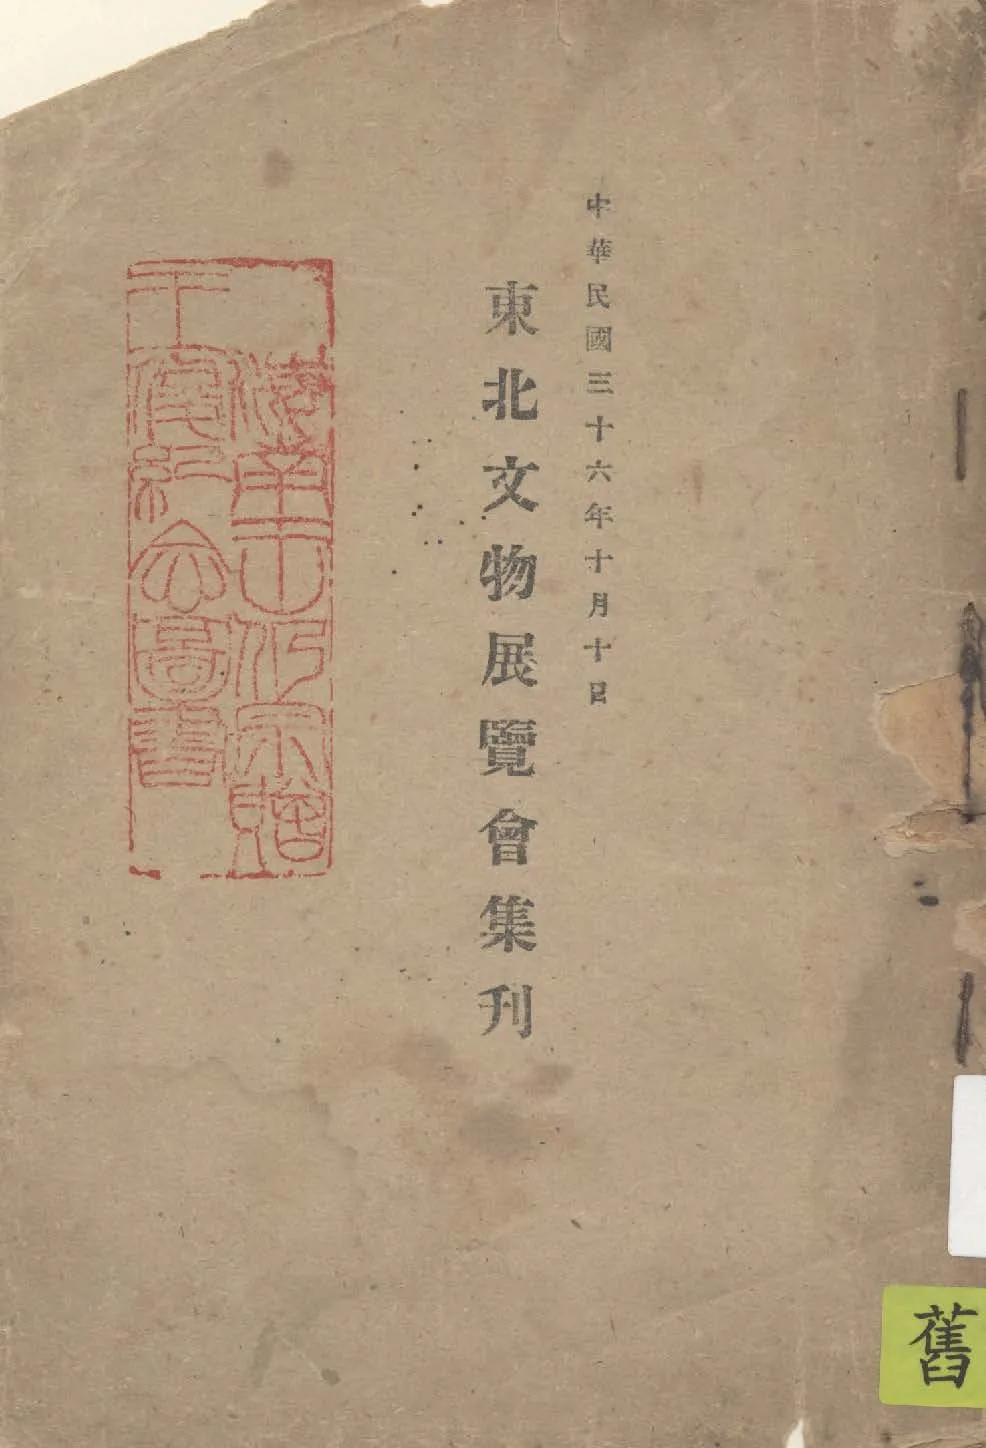 中華民國三十六年十月十日
東北文物展覽會集刊
圖書
舊